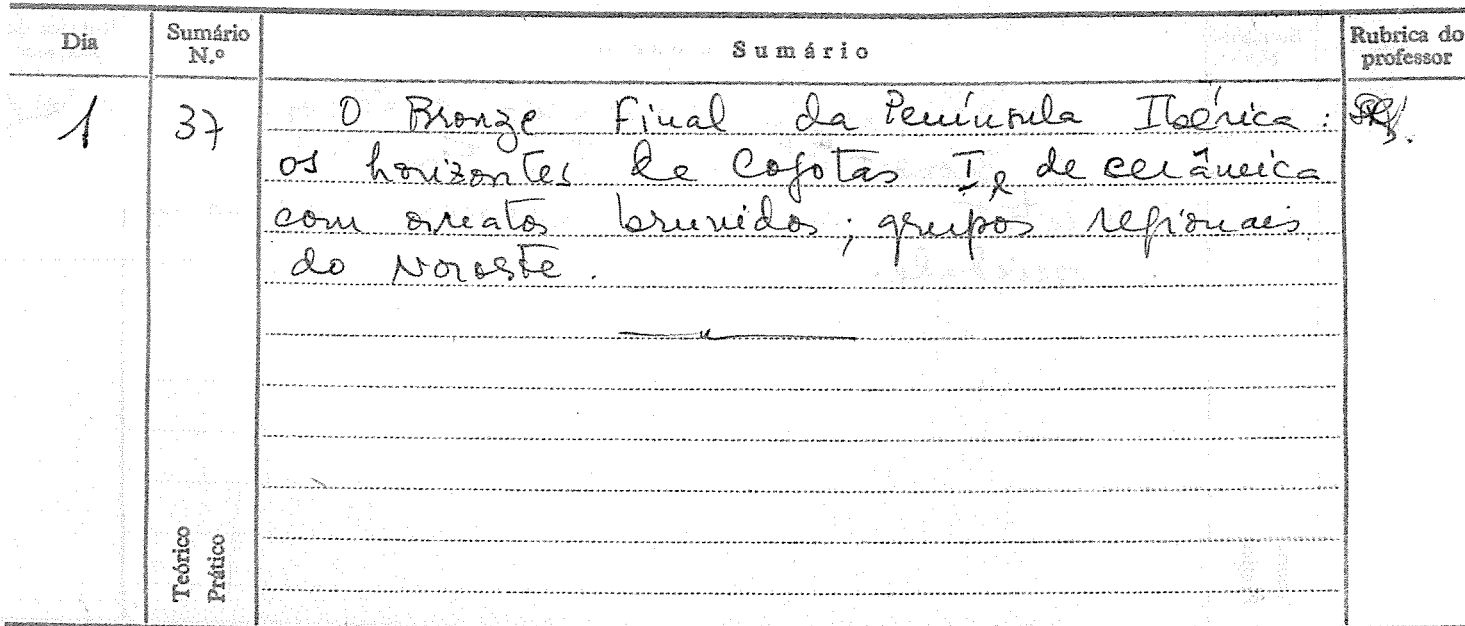 Dia
Sumário N.º
Sumário
Rubrica do professor
1
37
O Bronze Final da Península Ibérica:
os horizontes de Cogotas I e de cerâmica
com ornatos brunidos; grupos regionais
do Noroeste.
Teórico
Prático